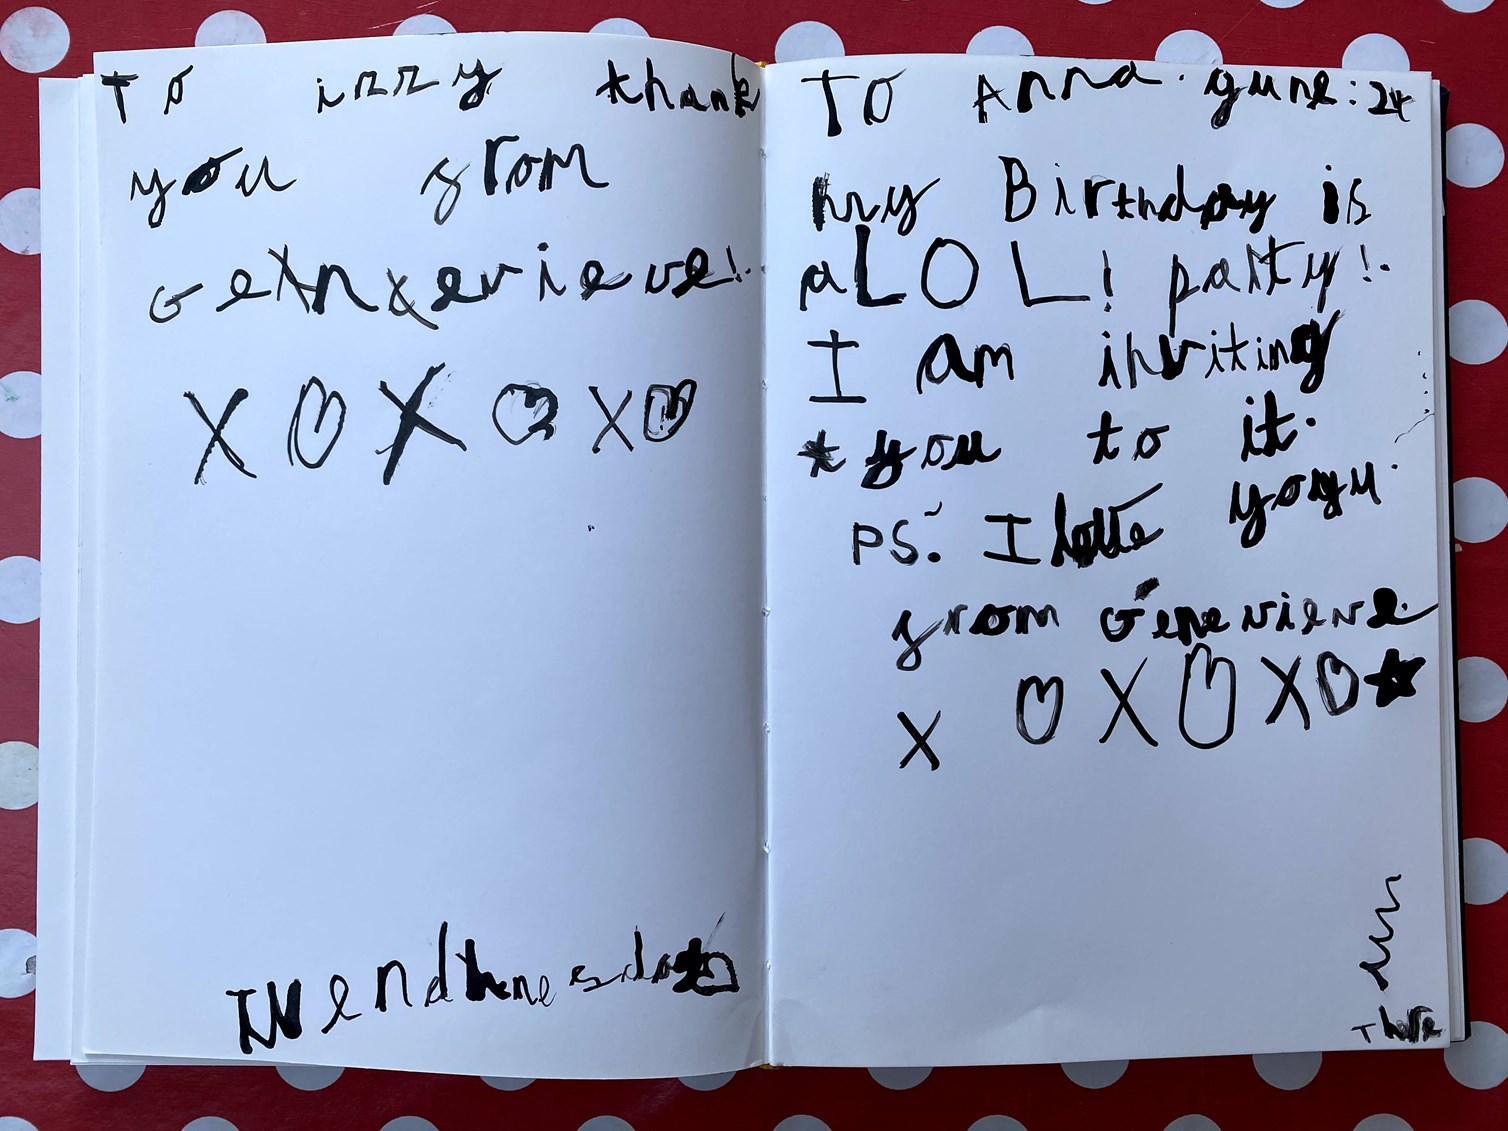 To izzy thank
you from
Genevieve!.
X O X O X O
To Anna. yune: 24
my Birthday is
a LOL! party!.
I am inviting
you to it.
PS: I love you.
from Genevieve.
X O X O X O